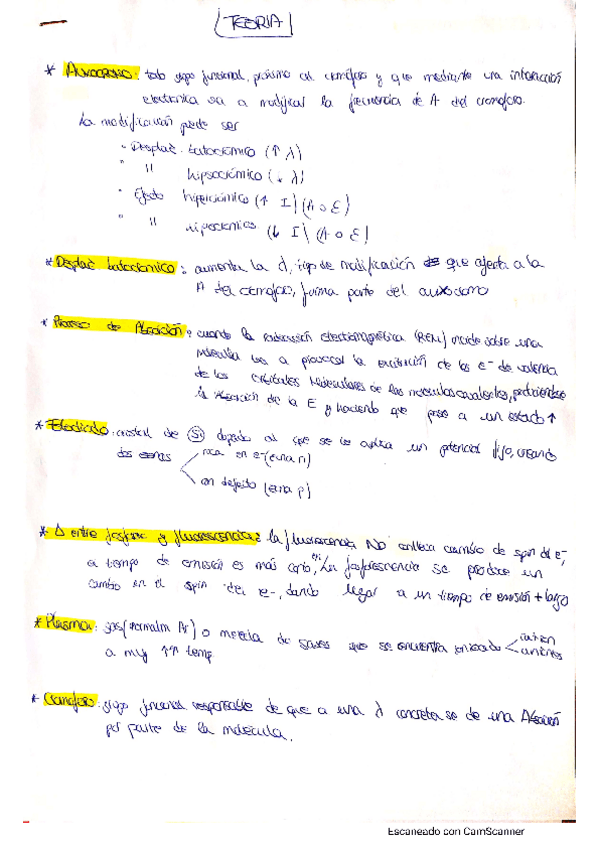 TEORIA
* Auxocromo: todo grupo funcional, próximo al cromóforo y que mediante una interacción
electrónica va a modificar la frecuencia de A del cromóforo.
La modificación puede ser
- Desplaz. batocrómico (↑ λ)
" " hipsocrómico (↓ λ)
" Efecto hipercrómico (↑ I) (A o ε)
" " hipocrómico (↓ I) (A o ε)
* Desplaz batocromico: aumenta la λ, tipo de modificación que afecta a la
A del cromóforo, forma parte del auxocromo
* Proceso de Absorción: cuando la radiación electromagnética (REM) incide sobre una
molécula va a provocar la excitación de los e- de valencia
de los orbitales moleculares de las moléculas, produciendose
la Absorción de la E y haciendo que pase a un estado ↑
* : cristal de Si dopado al que se le aplica un potencial fijo, creando
dos zonas rica en e- (zona n)
en defecto (zona p)
* Δ entre fosforesc y fluorescencia: la fluorescencia NO conlleva cambio de spin del e-,
el tiempo de emisión es más corto, la fosforescencia se produce un
cambio en el spin del e-, dando lugar a un tiempo de emisión + largo
* Plasma: gas (normalm Ar) o mezcla de gases que se encuentra ionizado cationes
a muy ↑↑ temp
* Cromoforo: grupo funcional responsable de que a una λ concreta se de una Absorción
por parte de la molécula.
Escaneado con CamScanner